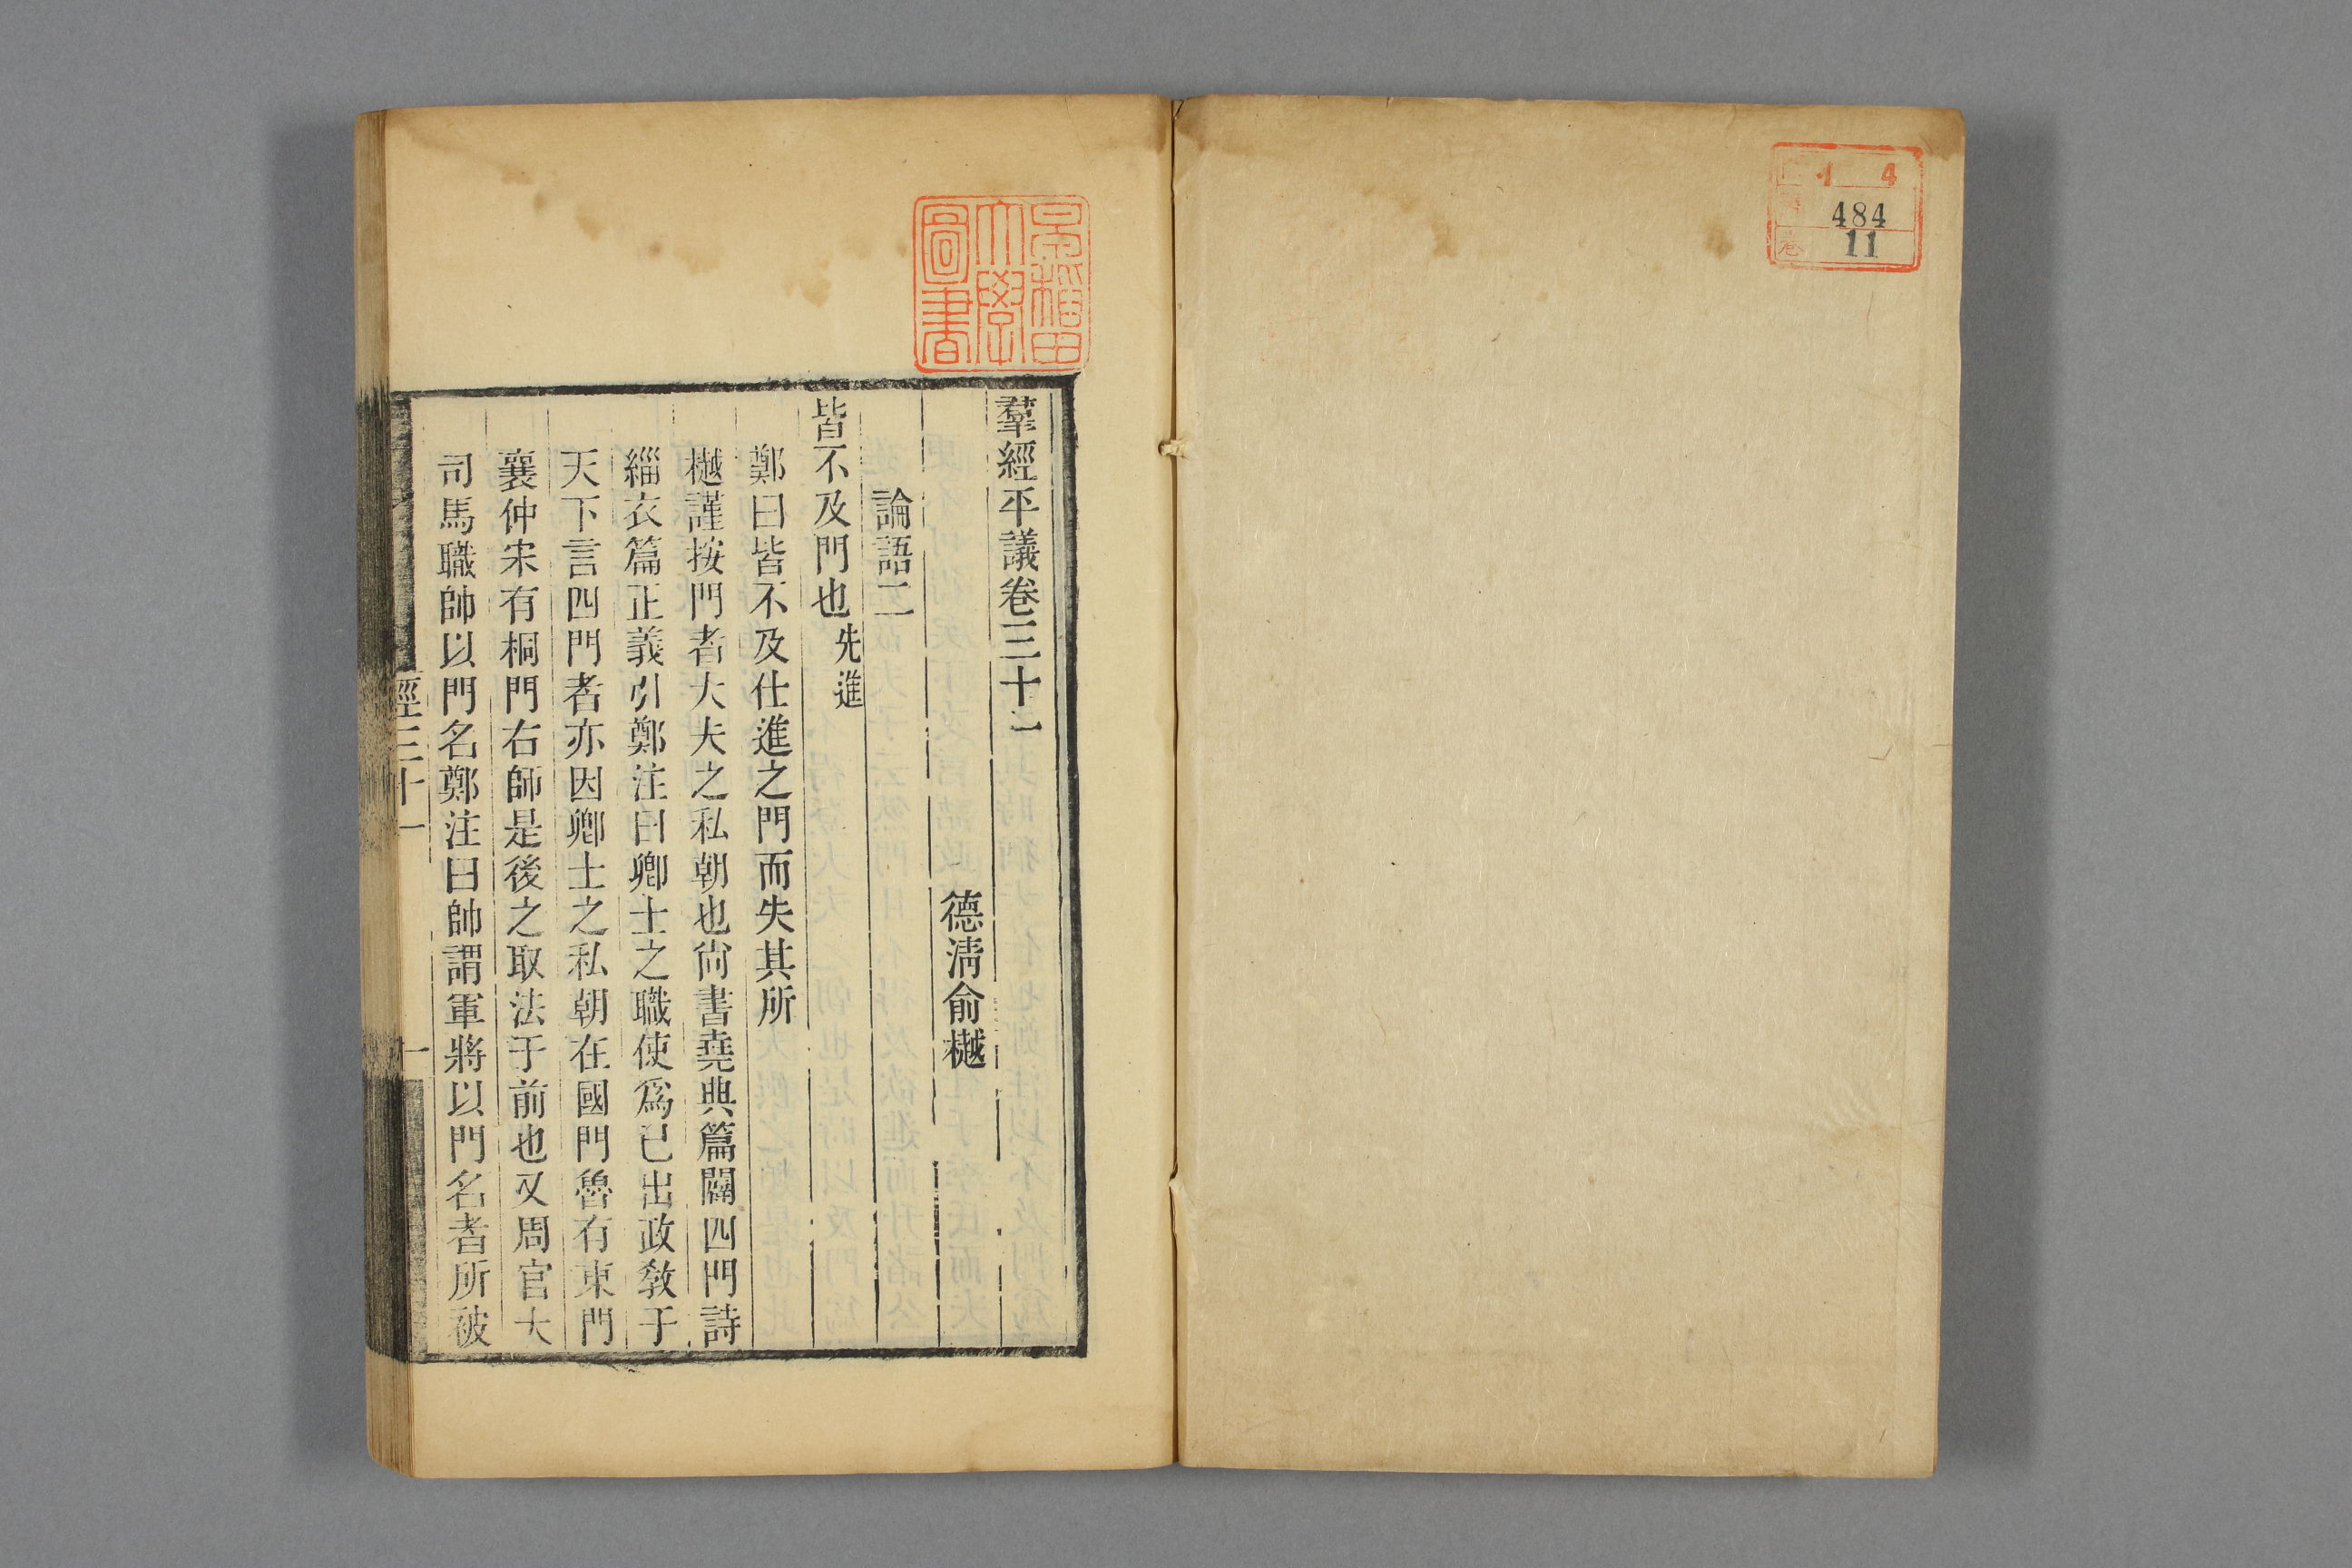 4 4
484
11
早稻田
大學
圖書
羣經平議卷三十一
德清俞樾
論語二
皆不及門也先進
鄭曰皆不及仕進之門而失其所
樾謹按門者大夫之私朝也尙書堯典篇闢四門詩
緇衣篇正義引鄭注曰卿士之職使爲己出政敎于
天下言四門者亦因卿士之私朝在國門魯有東門
襄仲宋有桐門右師是後之取法于前也又周官大
司馬職帥以門名鄭注曰帥謂軍將以門名者所被
經三十一
一